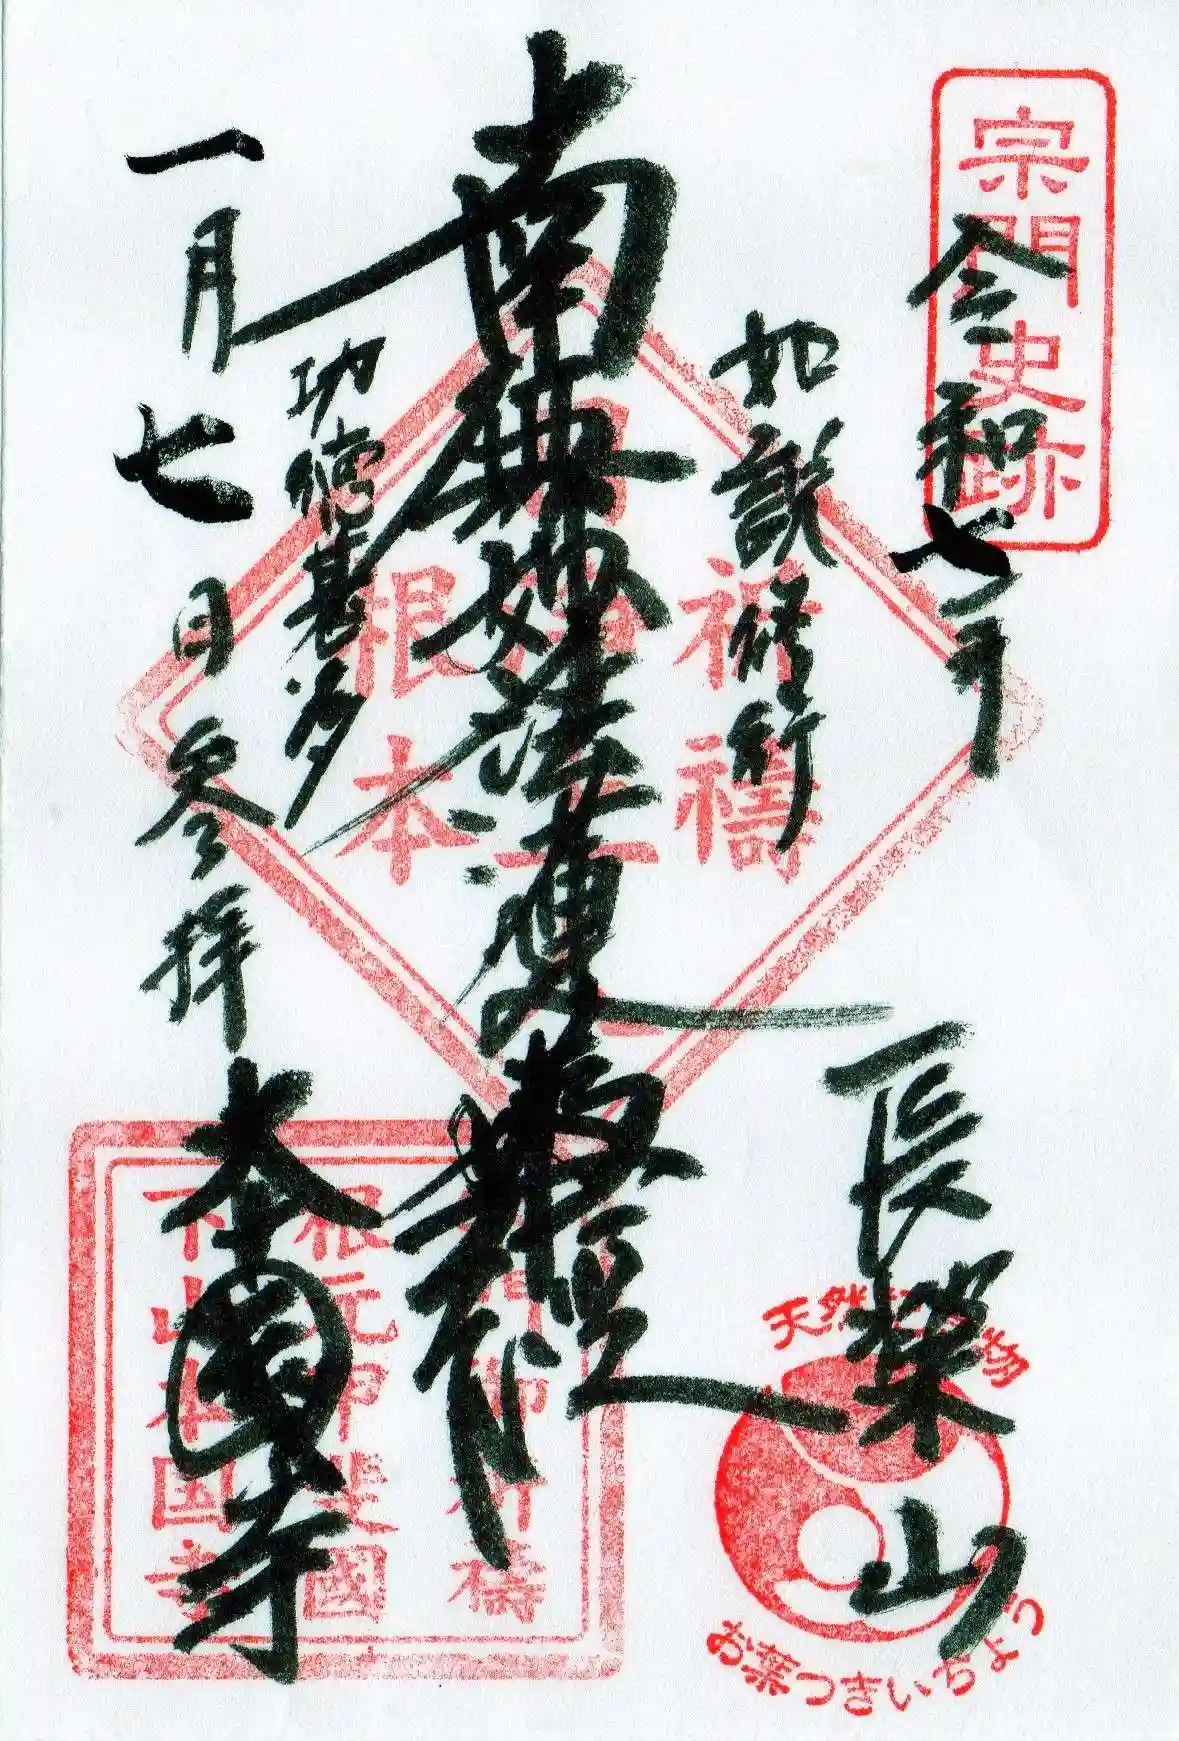 宗門史跡
令和七年
長榮山
如説修行
南無妙法蓮華経
功徳甚多
一月七日参拝
本國寺
祈禱
根本
祈禱
根元甲斐國
下山本国寺
天然
物
お葉つきいちょう